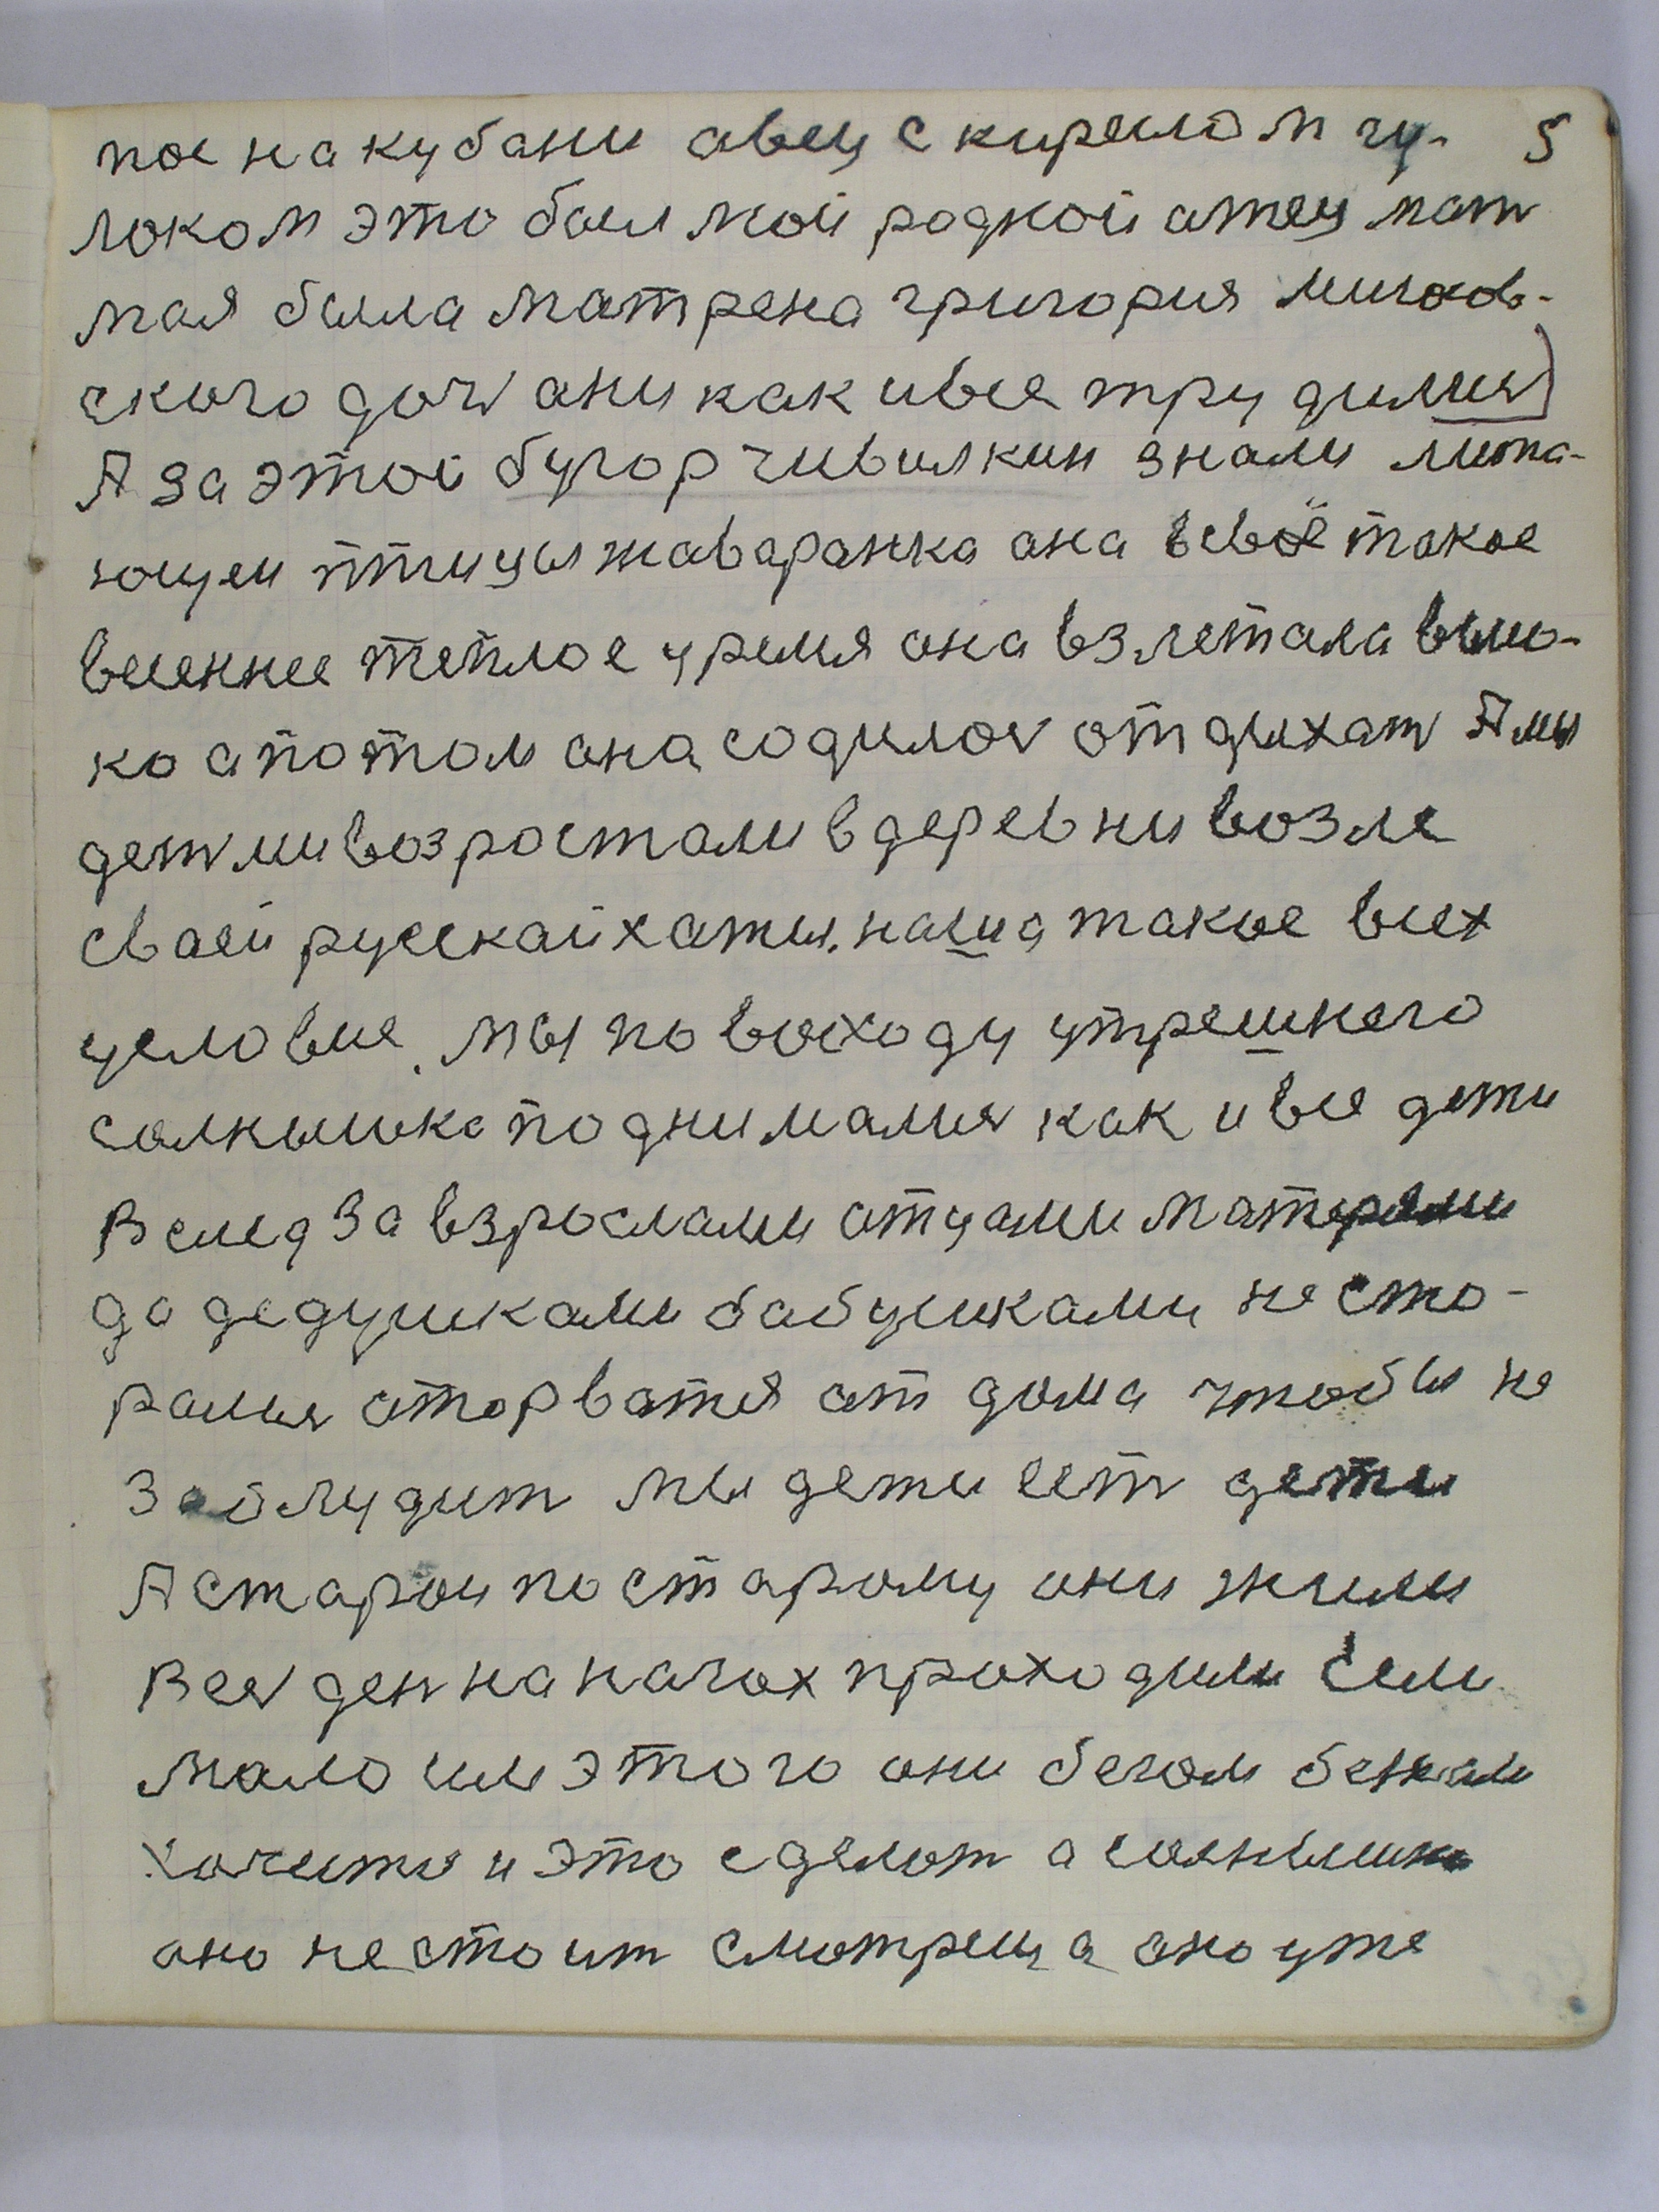 пое на кубани авец с кирелом чу- 5
локом это был мой родной атец мат
мая была матрена григория
ского доч ани как и все трудилис
А за этой бугор чивилкин знали
ющеи птицы жаваранка ана в свое такое
весеннее теплое уремя ана взлетала высо-
ко а потом ана содилос отдыхат А мы
детми возростали в деревни возле
сваей русскай хаты. наша такое всех
условие. мы по восходу утрешнего
солнышка поднималис как и все дети
Вслед за взрослами отцами матерями
да дедушками бабушками не сто-
ралис аторватся ат дома чтобы не
Заблудит мы дети ест дети
А старои по старому они жили
Вес ден на нагах проходили Если
мало им этого они бегом бежали
Хочится и это сделот а солнышко
оно не стоит смотреш а оно уже